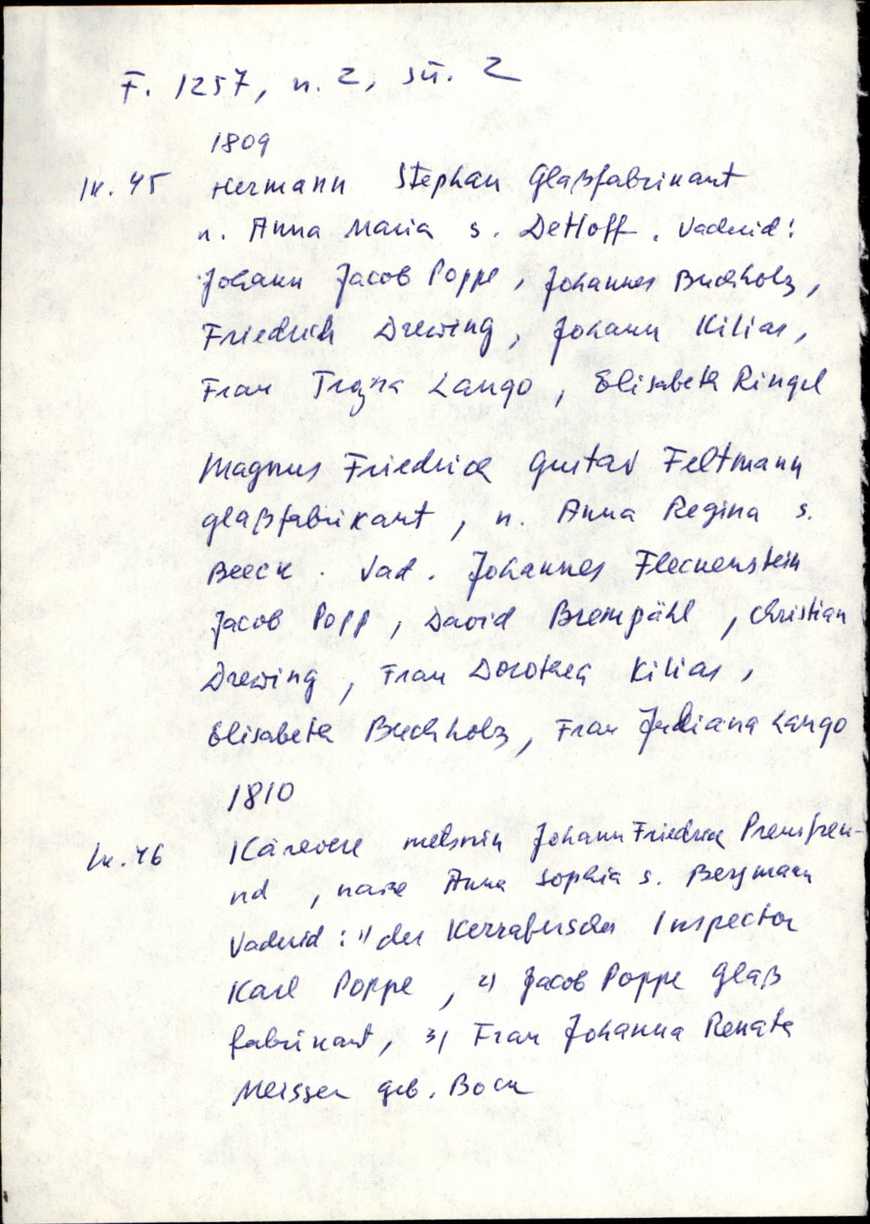 F. 1257, n. 2, sü. 2
1809
lk. 45 Hermann Stephan Glaßfabrikant
n. Anna Maria s. Dethoff. Vaderid:
Johann Jacob Poppe, Johannes Buchholz,
Friedrich Drewing, Johann Kilias,
Frau Lango, Elisabeth Ringel
Magnus Friedrich Gustav Feltmann
glaßfabrikant, n. Anna Regina s.
Beeck. Vad. Johannes Fleckenstein
Jacob Popp, David Brempähl, Christian
Drewing, Frau Dorothea Kilias,
Elisabeth Buchholz, Frau Juliana Lango
1810
lk. 46 Kärevere metsniк Johann Friedrich Preusfreu-
nd, naise Anna Sophia s. Bergmann
Vaderid: 1) der Kerrafersche Inspector
Karl Poppe, 2) Jacob Poppe Glaß
fabrikant, 3) Frau Johanna Renata
Meisser geb. Bock